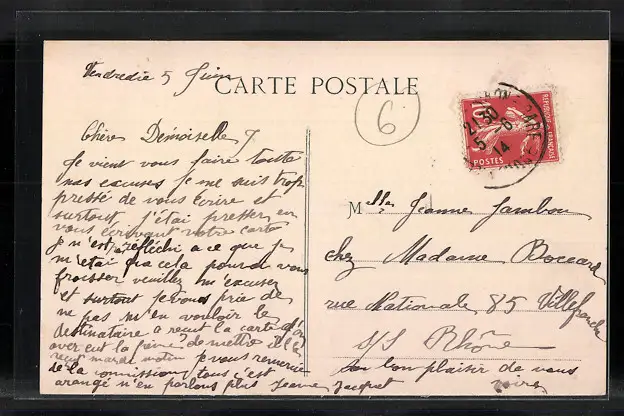 Vendredie 5 Juin
CARTE POSTALE
6
21 30
5 - 6
14
RÉPUBLIQUE FRANÇAISE
POSTES
Chère Demoiselle
Je vient vous faire toute
mes excuses Je me suis trop
pressé de vous écrire et
surtout j'étai presser en
vous écrivant votre carte
je n'est réfléchi a ce que je
m'étai cela pouvai vous
froisser veuillez m'excuser
et surtout Je vous prie de
ne pas m'en vouloir le
destinataire a recut la carte
avez eut la peine de mettre il l'a
recut mardi matin je vous remercie
de la commission tous c'est
arangé n'en parlons plus Jeanne Jacquet
Melle Jeanne Jambon
chez Madame Boccard
rue Nationale 85 Villefranche
s/s Rhône
au bon plaisir de vous
voire